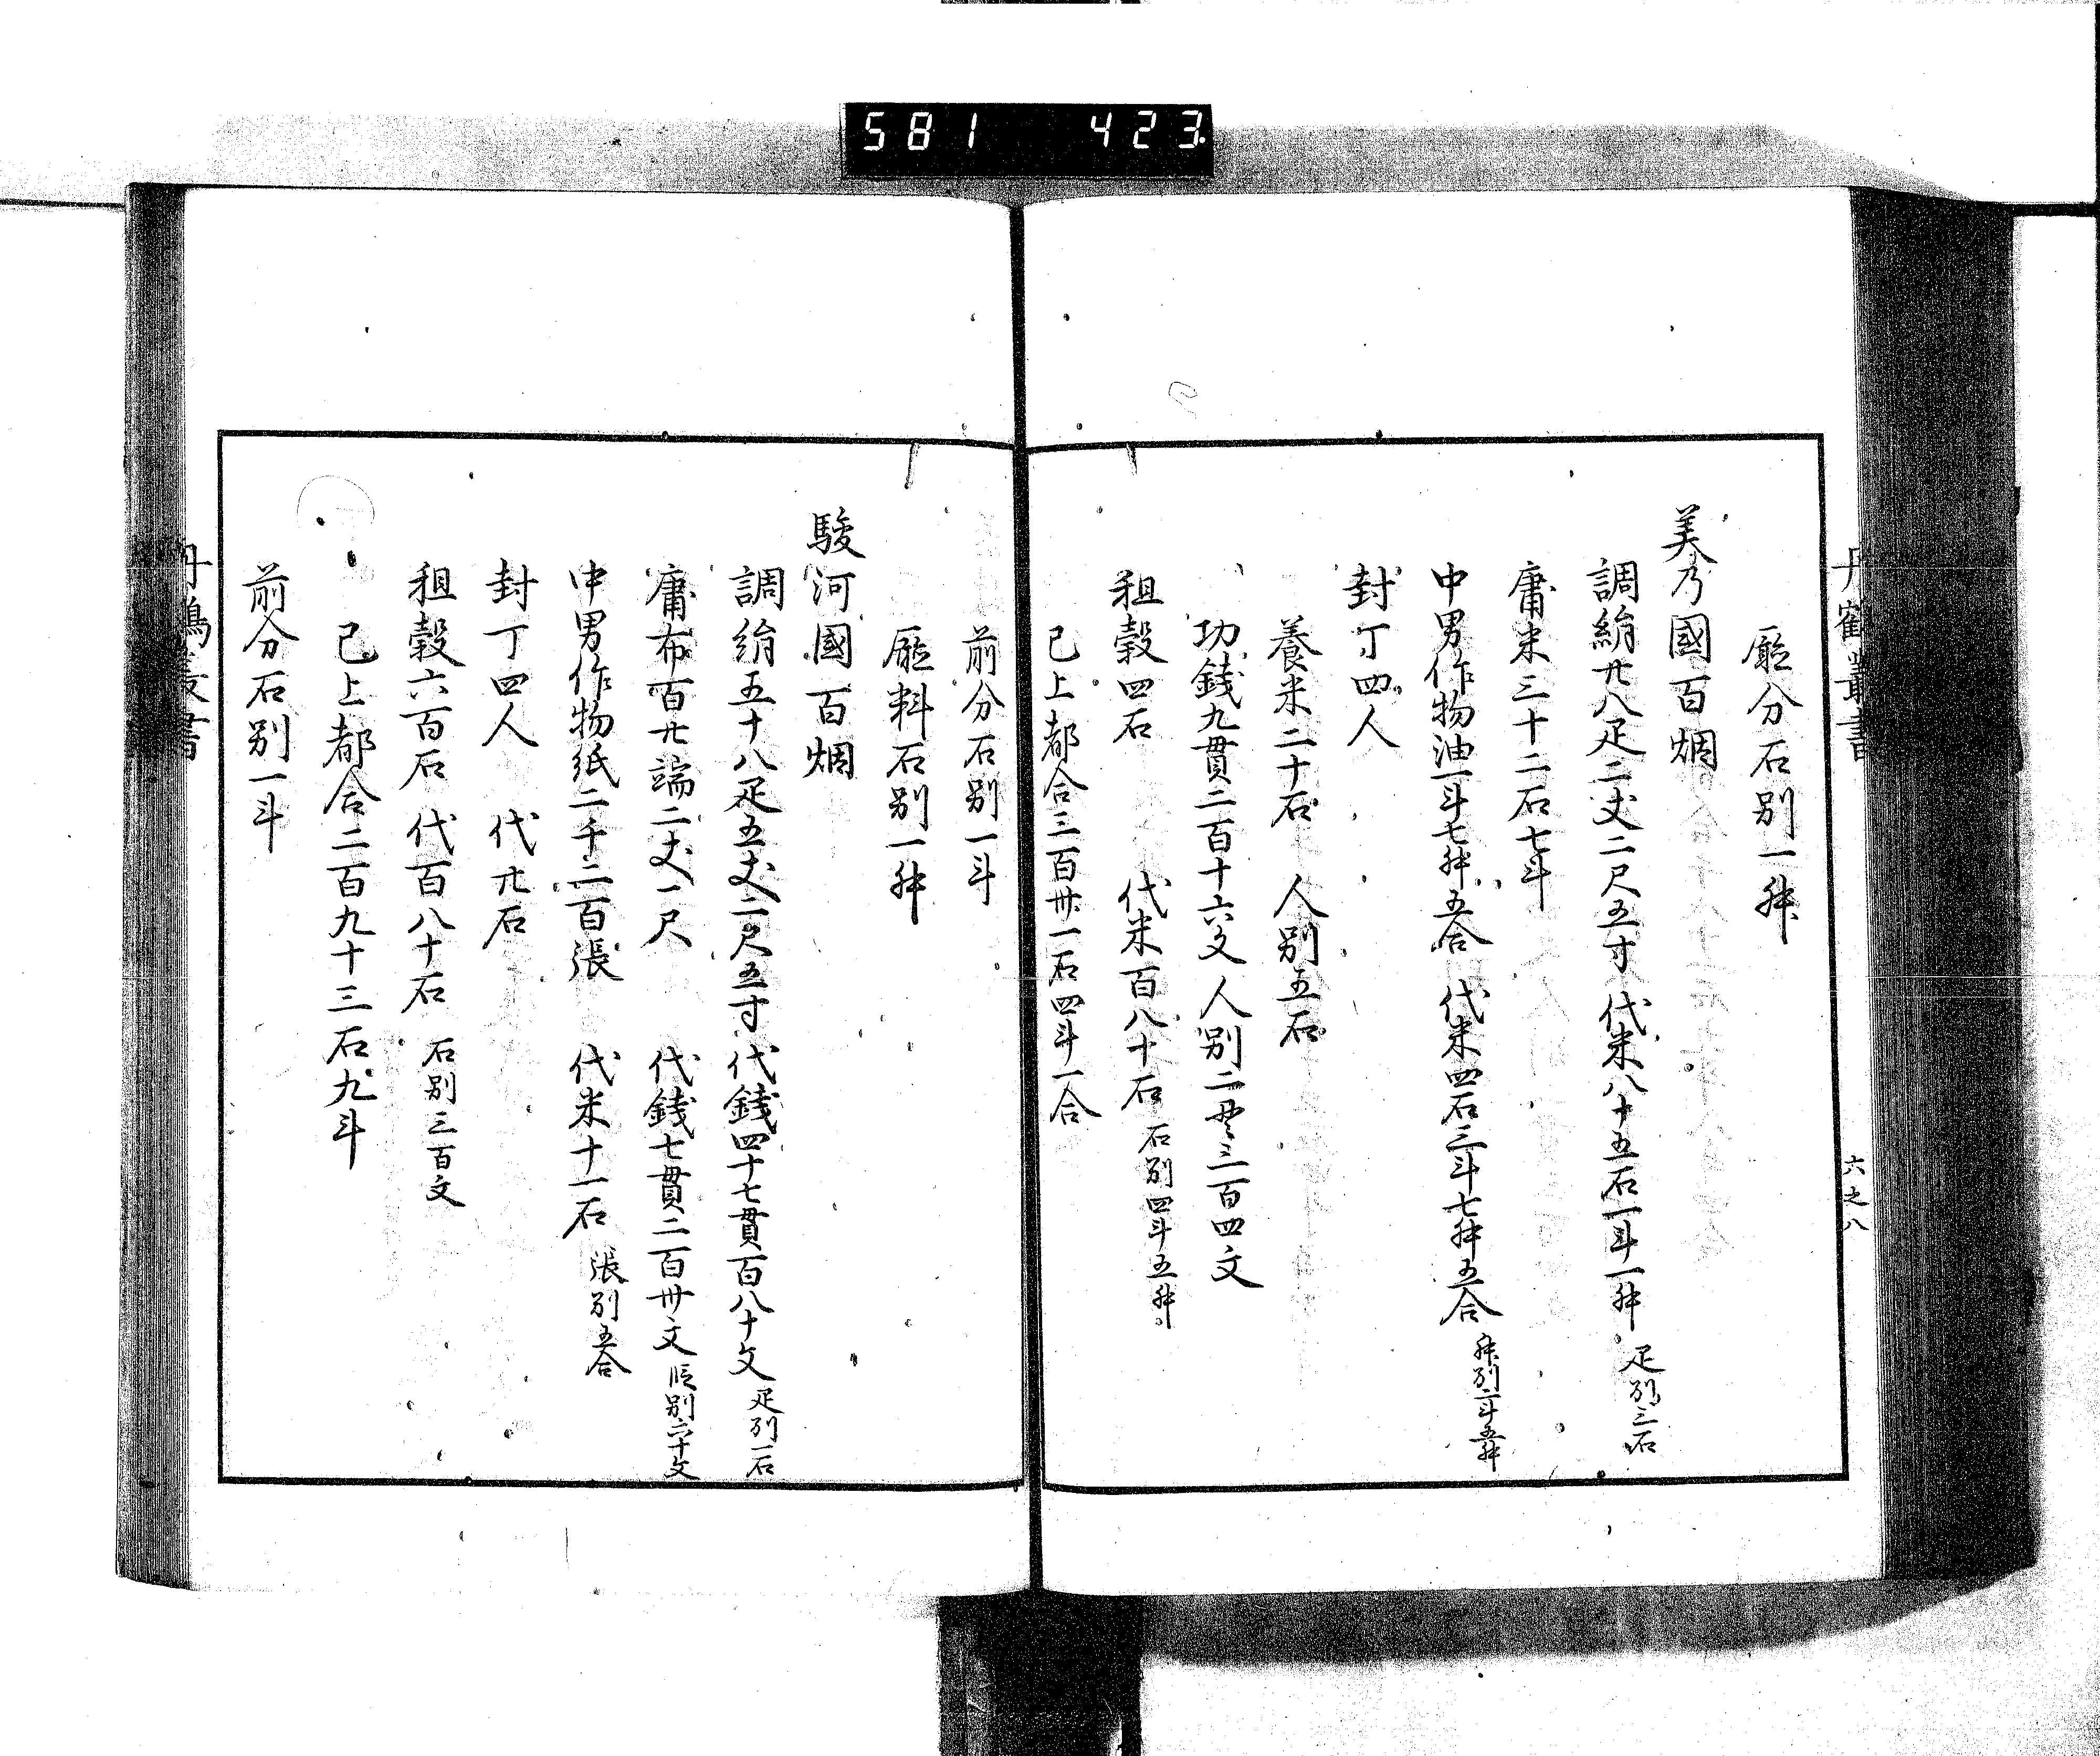 581 423
丹鶴叢書
六之八
廳分石別一舛
美乃國百烟
調絹廿八疋二丈二尺五寸 代米八十五石一斗一舛 疋別三石
庸米三十二石七斗
中男作物油一斗七舛五合 代米四石三斗七舛五合 舛別二斗五舛
封丁四人
養米二十石 人別五石
功錢九貫二百十六文 人別二貫三百四文
租穀四石 代米百八十石 石別四斗五舛
已上都合三百卅一石四斗一合
前分石別一斗
廳料石別一舛
駿河國百烟
調絹五十八疋五丈二尺五寸 代錢四十七貫百八十文 疋別一石
庸布百廿端二丈一尺 代錢七貫二百卅文 段別六十文
中男作物紙二千二百張 代米十一石 張別五合
封丁四人 代廿石
租穀六百石 代百八十石 石別三百文
已上都合二百九十三石九斗
前分石別一斗
丹鶴叢書